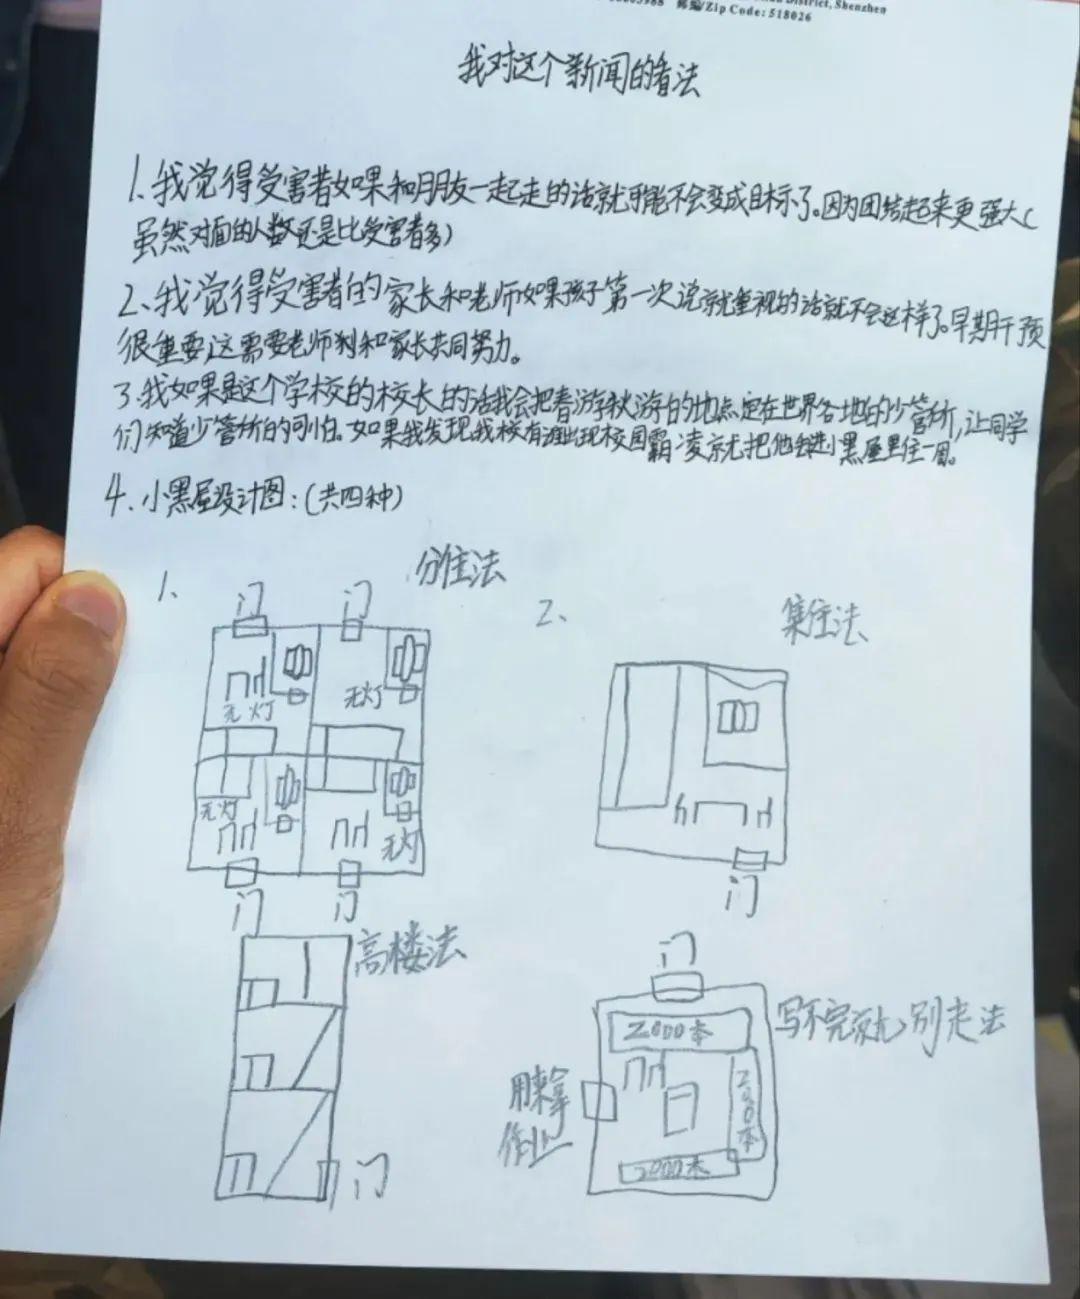 District, Shenzhen
邮编/Zip Code: 518026
我对这个新闻的看法
1、我觉得受害者如果和朋友一起走的话就可能不会变成目标了。因为团结起来更强大(
虽然对面的人数还是比受害者多)
2、我觉得受害者的家长和老师如果孩子第一次说就重视的话就不会这样了。早期干预
很重要这需要老师和家长共同努力。
3、我如果是这个学校的校长的话我会把春游秋游的地点定在世界各地的少管所,让同学
们知道少管所的可怕。如果我发现我校有出现校园霸凌就把他丢进小黑屋里住一周。
4、小黑屋设计图:(共四种)
1、
分住法
门 门
无灯 无灯
无灯 无灯
门 门
2、
集住法
门
高楼法
门
门
写不完就别走法
2000本
2000本
2000本
用来拿
作业